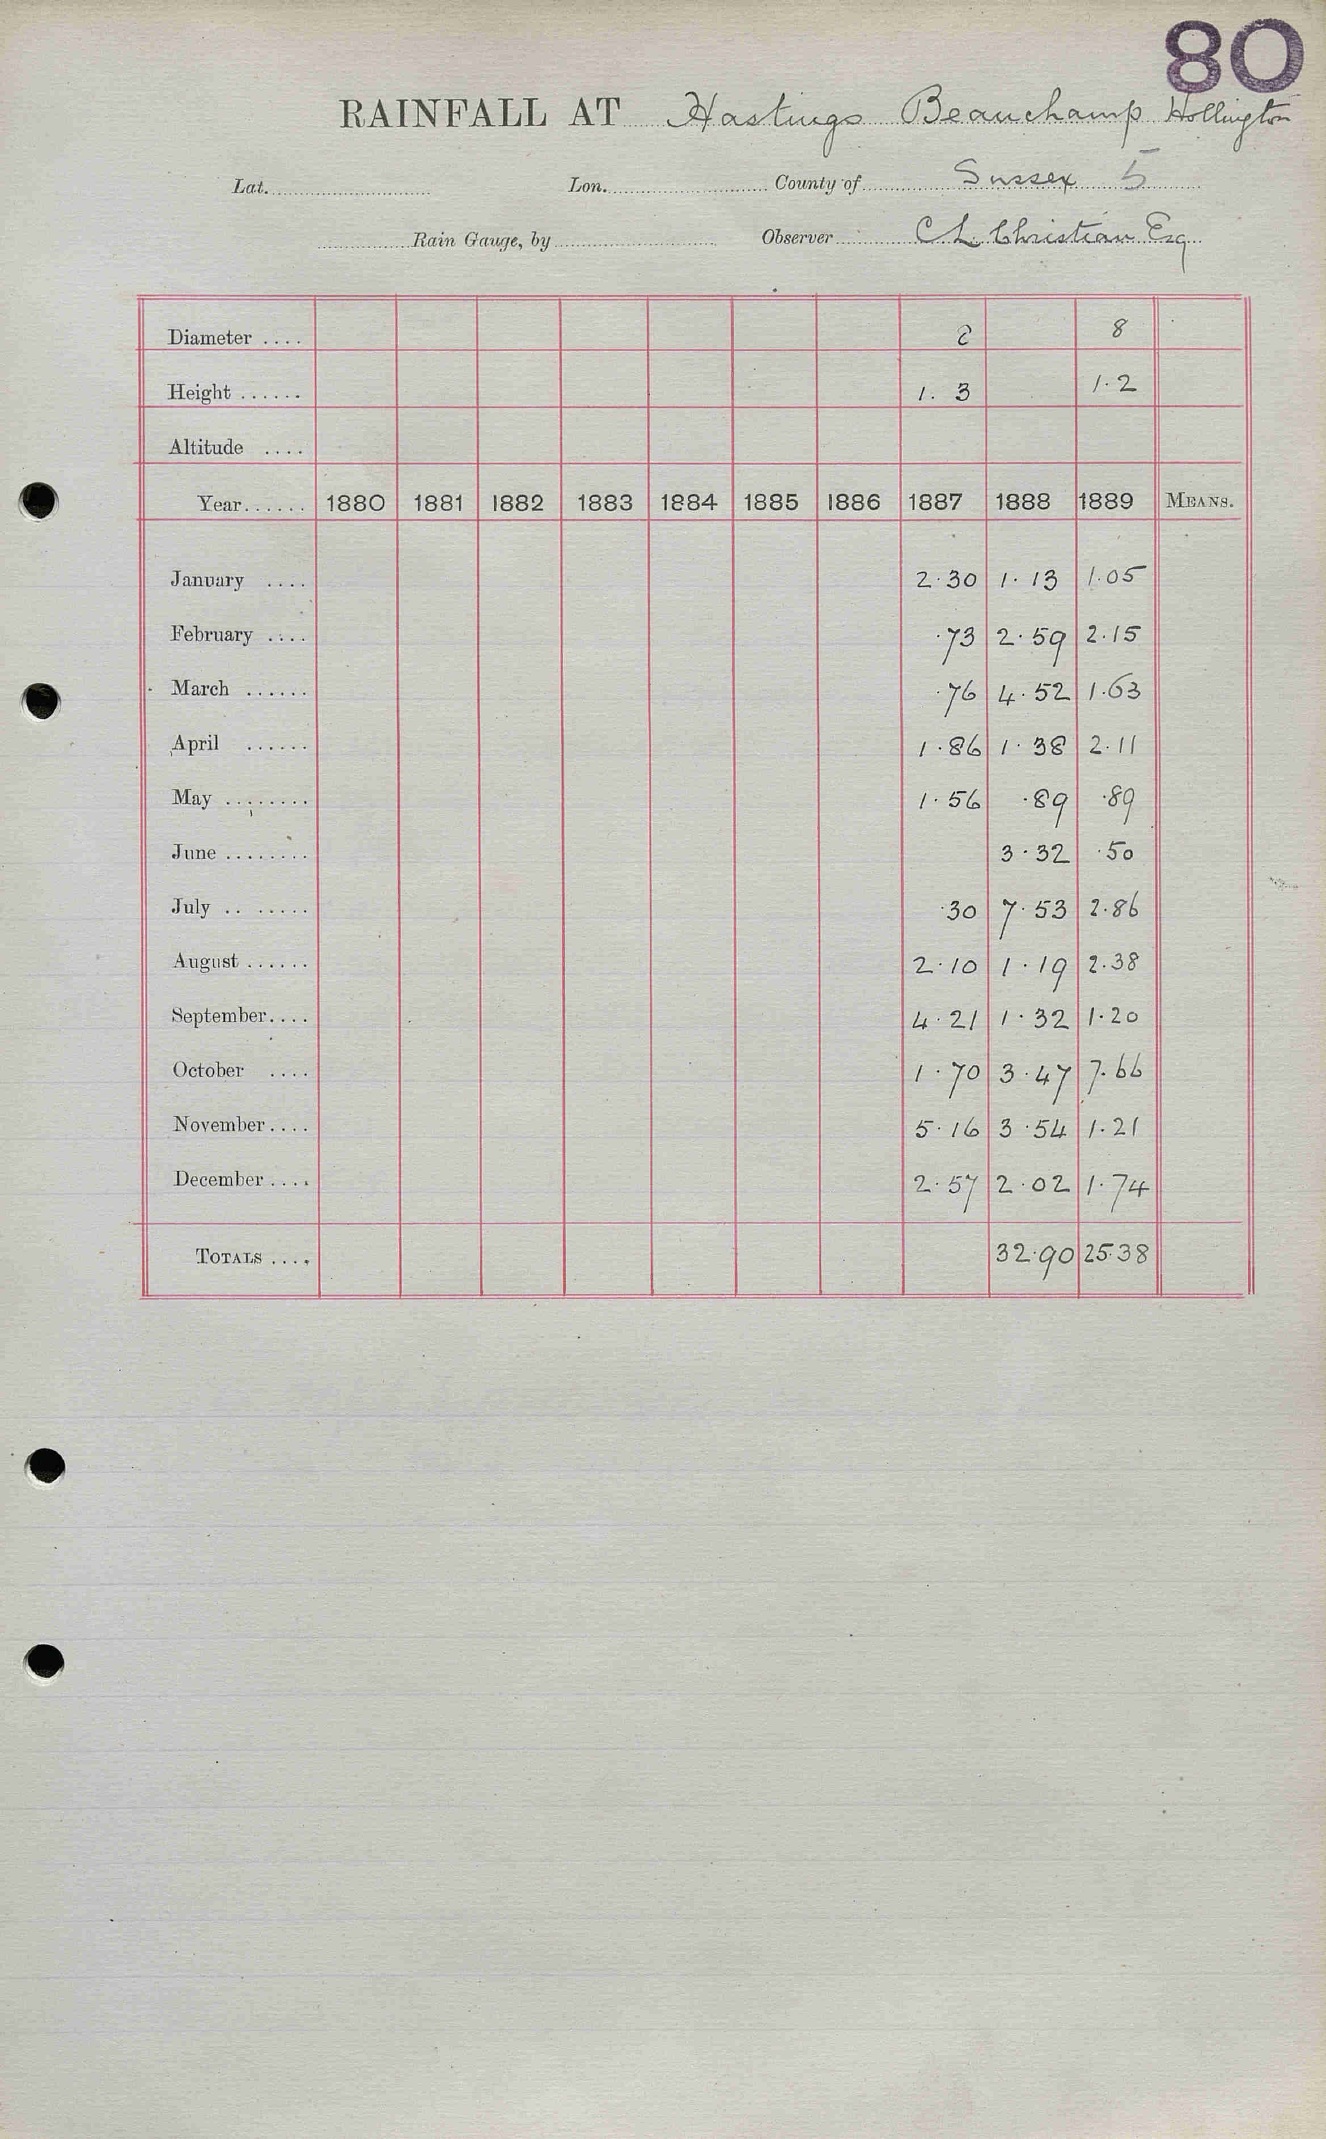 80
RAINFALL AT Hastings Beauchamp Hollington
Lat. Lon. County of Sussex 5
Rain Gauge, by Observer C L Christian Esq
Diameter .... 8 8
Height ...... 1. 3 1.2
Altitude ....
Year ...... 1880 1881 1882 1883 1884 1885 1886 1887 1888 1889 MEANS.
January .... 2.30 1.13 1.05
February .... .73 2.59 2.15
March ...... .76 4.52 1.63
April ...... 1.86 1.38 2.11
May ........ 1.56 .89 .89
June ........ 3.32 .50
July .. ...... .30 7.53 2.86
August ...... 2.10 1.19 2.38
September.... 4.21 1.32 1.20
October .... 1.70 3.47 7.66
November.... 5.16 3.54 1.21
December .... 2.57 2.02 1.74
TOTALS .... 32.90 25.38